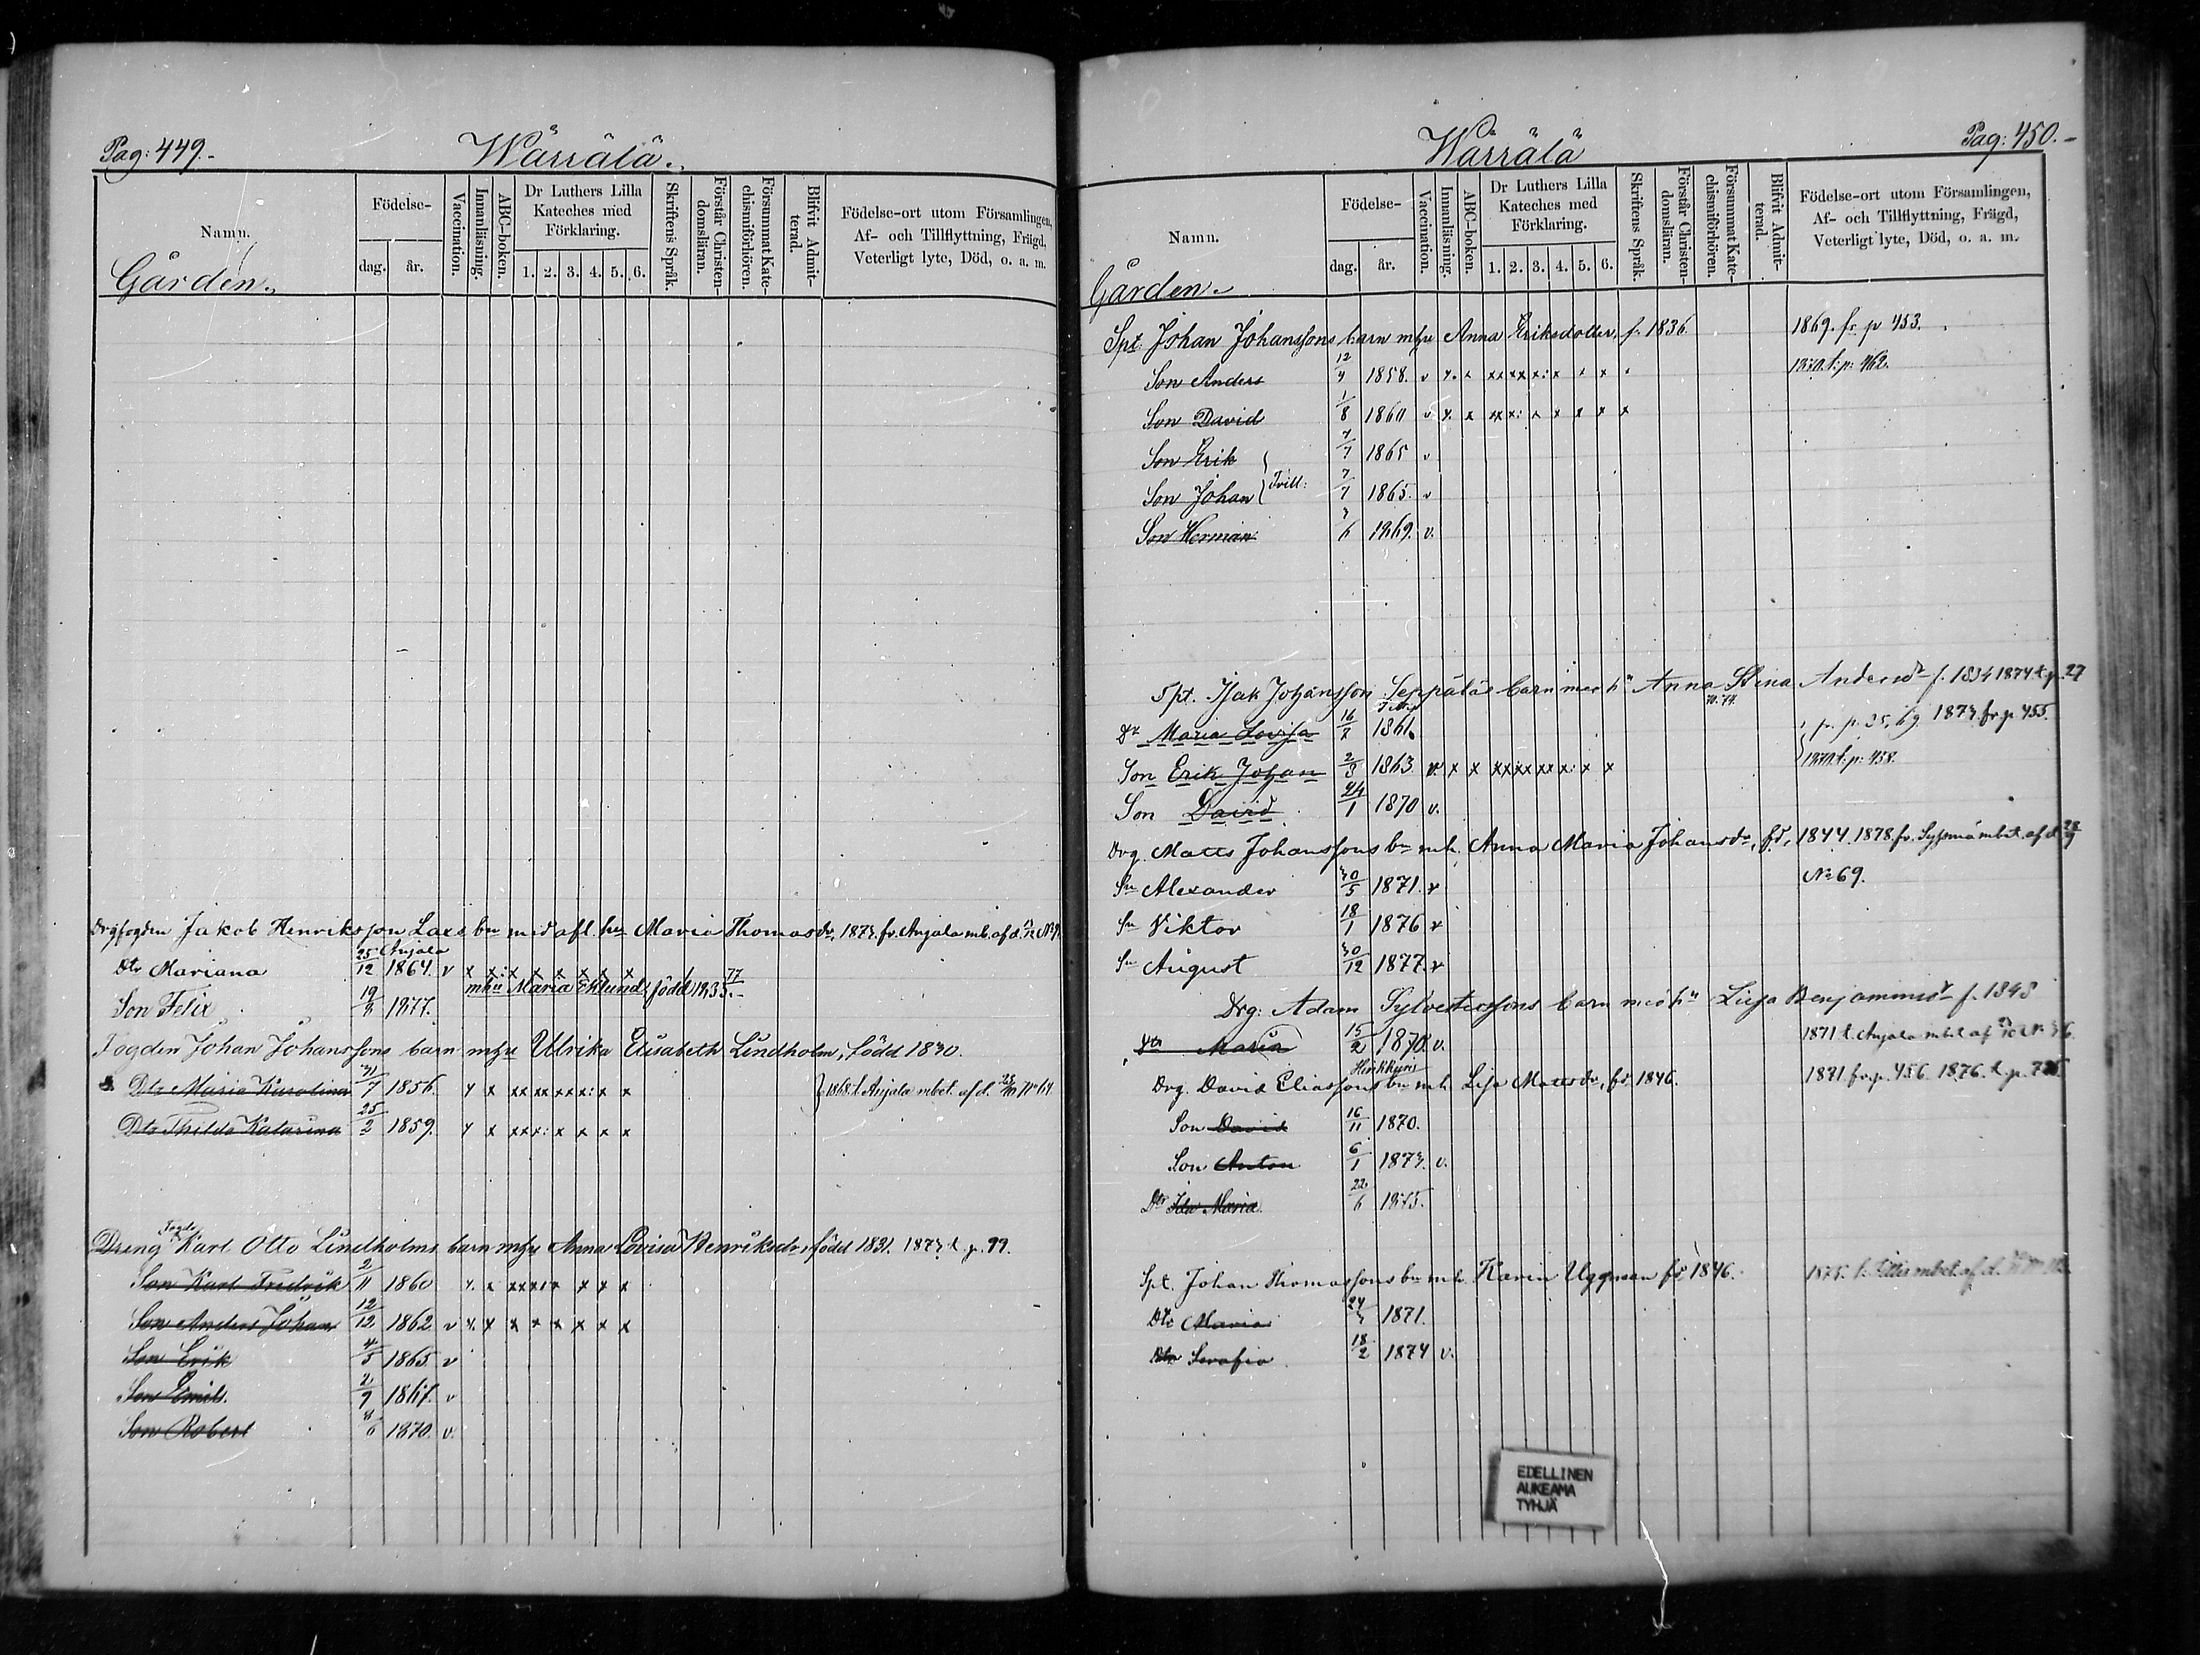 Pag: 449.
Wärrälä.
Namn.
Födelse-
dag.
år.
Vaccination.
Innanläsning.
ABC-boken.
Dr Luthers Lilla Kateches med Förklaring.
1. 2. 3. 4. 5. 6.
Skriftens Språk.
Förstår Christendomsläran.
Försummat Katechismiförhören.
Blifvit Admitterad.
Födelse-ort utom Församlingen,
Af- och Tillflyttning, Frägd,
Veterligt lyte, Död, o. a. m.
Gården.
Drgfogden Jakob Henriksson Laes bn med afl. hu Maria Thomasdr, 1873. fr. Anjala mb. af d.
Anjala
Dtr Mariana 25/12 1864. v x x:x x x x x x
mhu Maria Eklund, född 1835.
Son Felix 1877.
Fogden Johan Johanssons barn mhu Ulrika Elisabeth Lindholm, född 1830.
Dtr Maria Karolina 31/7 1856. x x xx xx x x: x x 1868. t. Anjala mbet. af d.
Dtr Thilda Katarina 25/2 1859. x x xxx: x x x x
Dreng Karl Otto Lindholms barn mhu Anna Lovisa Henriksdr, född 1831. 1873 t. p. 99.
Son Karl Fredrik 2/11 1860
Son Anders Johan 12/12 1862 v x. x x x x x x x
Son Erik 4/5 1865 v
Son Emil. 2/9 1867. v
Son Robert 1870. v.
Pag: 450.
Wärrälä
Namn.
Födelse-
dag.
år.
Vaccination.
Innanläsning.
ABC-boken.
Dr Luthers Lilla Kateches med Förklaring.
1. 2. 3. 4. 5. 6.
Skriftens Språk.
Förstår Christendomsläran.
Försummat Katechismiförhören.
Blifvit Admitterad.
Födelse-ort utom Församlingen,
Af- och Tillflyttning, Frägd,
Veterligt lyte, Död, o. a. m.
Gården.
Spt: Johan Johanssons barn mhu Anna Eriksdotter, f. 1836 1869. fr. p 453.
Son Anders 12/4 1858. v 1870. t. p: 462.
Son David 1/8 1860 v
Son Erik 7/7 1865 v
Tvill:
Son Johan 7/7 1865. v
Son Herman 1869. v.
Spt. Isak Johansson Seppäläs barn med hu Anna Stina Andersdr f. 1834 1874 t. p. 27
Dr Maria Lovisa 16/7 1861. fr. p. 25, 69 1873. fr. p. 455.
Son Erik Johan 1863. v. x x xxxx xx x: x x 1870. t. p: 458.
Son David 24/1 1870 v.
Drg. Matts Johanssons bn mh. Anna Maria Johansdr, fd, 1844. 1878. fr. Sippola mbet. af d.
No 69.
Sn Alexander 30/5 1871. v
Sn Viktor 18/1 1876 v
Sn August 30/12 1877. v
Drg: Adam Sylvesterssons barn med hu Lisa Benjaminsdr f. 1843
Dtr Maria 15/2 1870. v. 1871 t. Anjala mbet af
Drg. David Eliassons bn mh. Lisa Mattsdr, fd. 1846. 1871 fr. p. 456. 1876. t. p.
Son David 16/11 1870.
Son Anton 6/1 1873. v.
Dtr Ida Maria 22/6 1875.
Spt. Johan Thomassons bn mh. Karin Uggman fd 1846. 1875. t.
Dtr Maria 1871.
Dtr Serafia 18/2 1874 v.
EDELLINEN
AUKEAMA
TYHJÄ